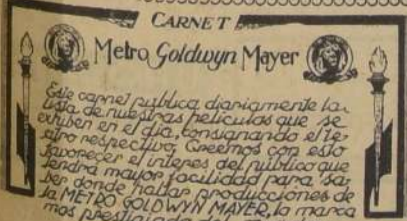 CARNET
Metro Goldwyn Mayer
Este carnet publica diariamente la
lista de nuestras peliculas que se
exhiben en el dia, consignando el te-
atro respectivo, Creemos con esto
favorecer el interes del público que
tendrá mayor facilidad para sa-
ber donde hallar producciones de
la METRO GOLDWYN MAYER, la marca
mas prestigiada